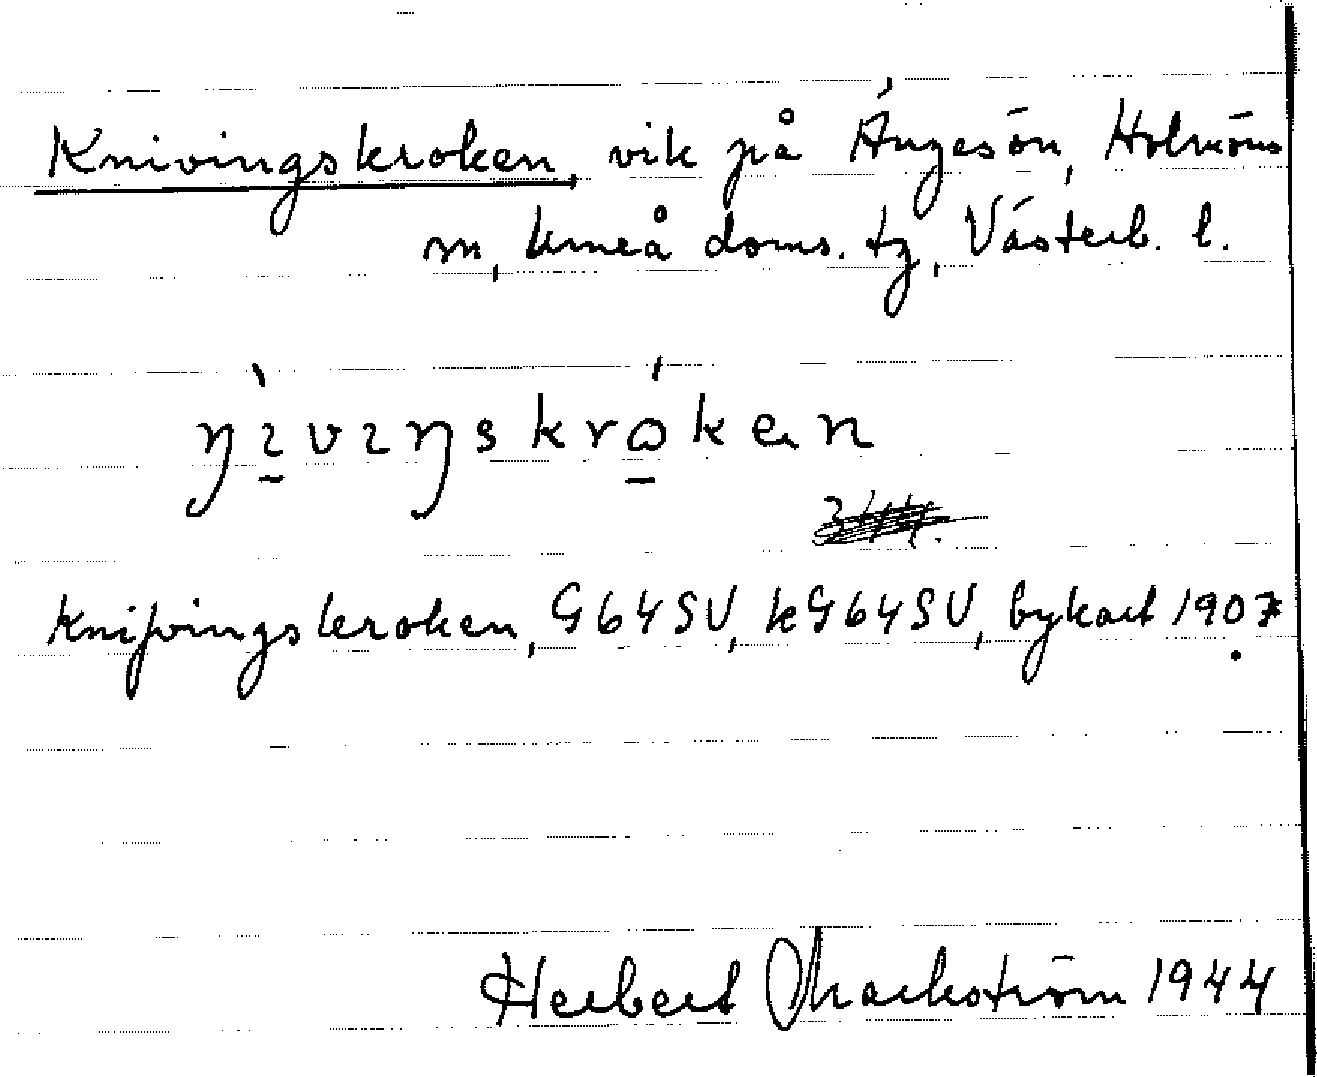 Knivingskroken, vik på Ängesön, Holmöns
m, Umeå doms. tg, Västerb. l.
Knifvingskroken, G64SV, kG64SV, bykart 1907.
Herbert Markström 1944